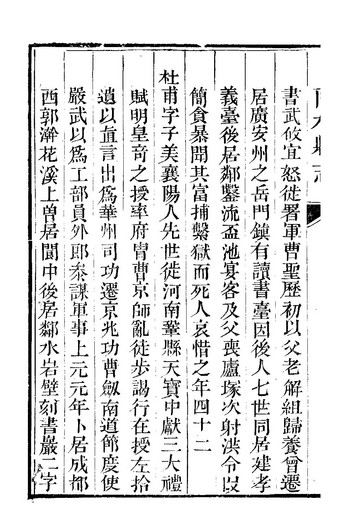 書武攸宜怒徙署軍曹聖歷初以父老解組歸養曾遷
居廣安州之岳門鎮有讀書臺因後人七世同居建孝
義臺後居鄰鑿流盃池宴客及父喪廬塚次射洪令段
簡貪暴聞其富捕繫獄而死人哀惜之年四十二
杜甫字子美襄陽人先世徙河南鞏縣天寶中獻三大禮
賦明皇奇之授率府冑曹京師亂徒步謁行在授左拾
遺以直言出爲華州司功遷京兆功曹劔南道節度使
嚴武以爲工部員外郎叅謀軍事上元元年卜居成都
西郭澣花溪上曽居閬中後居鄰水岩壁刻書嚴二字